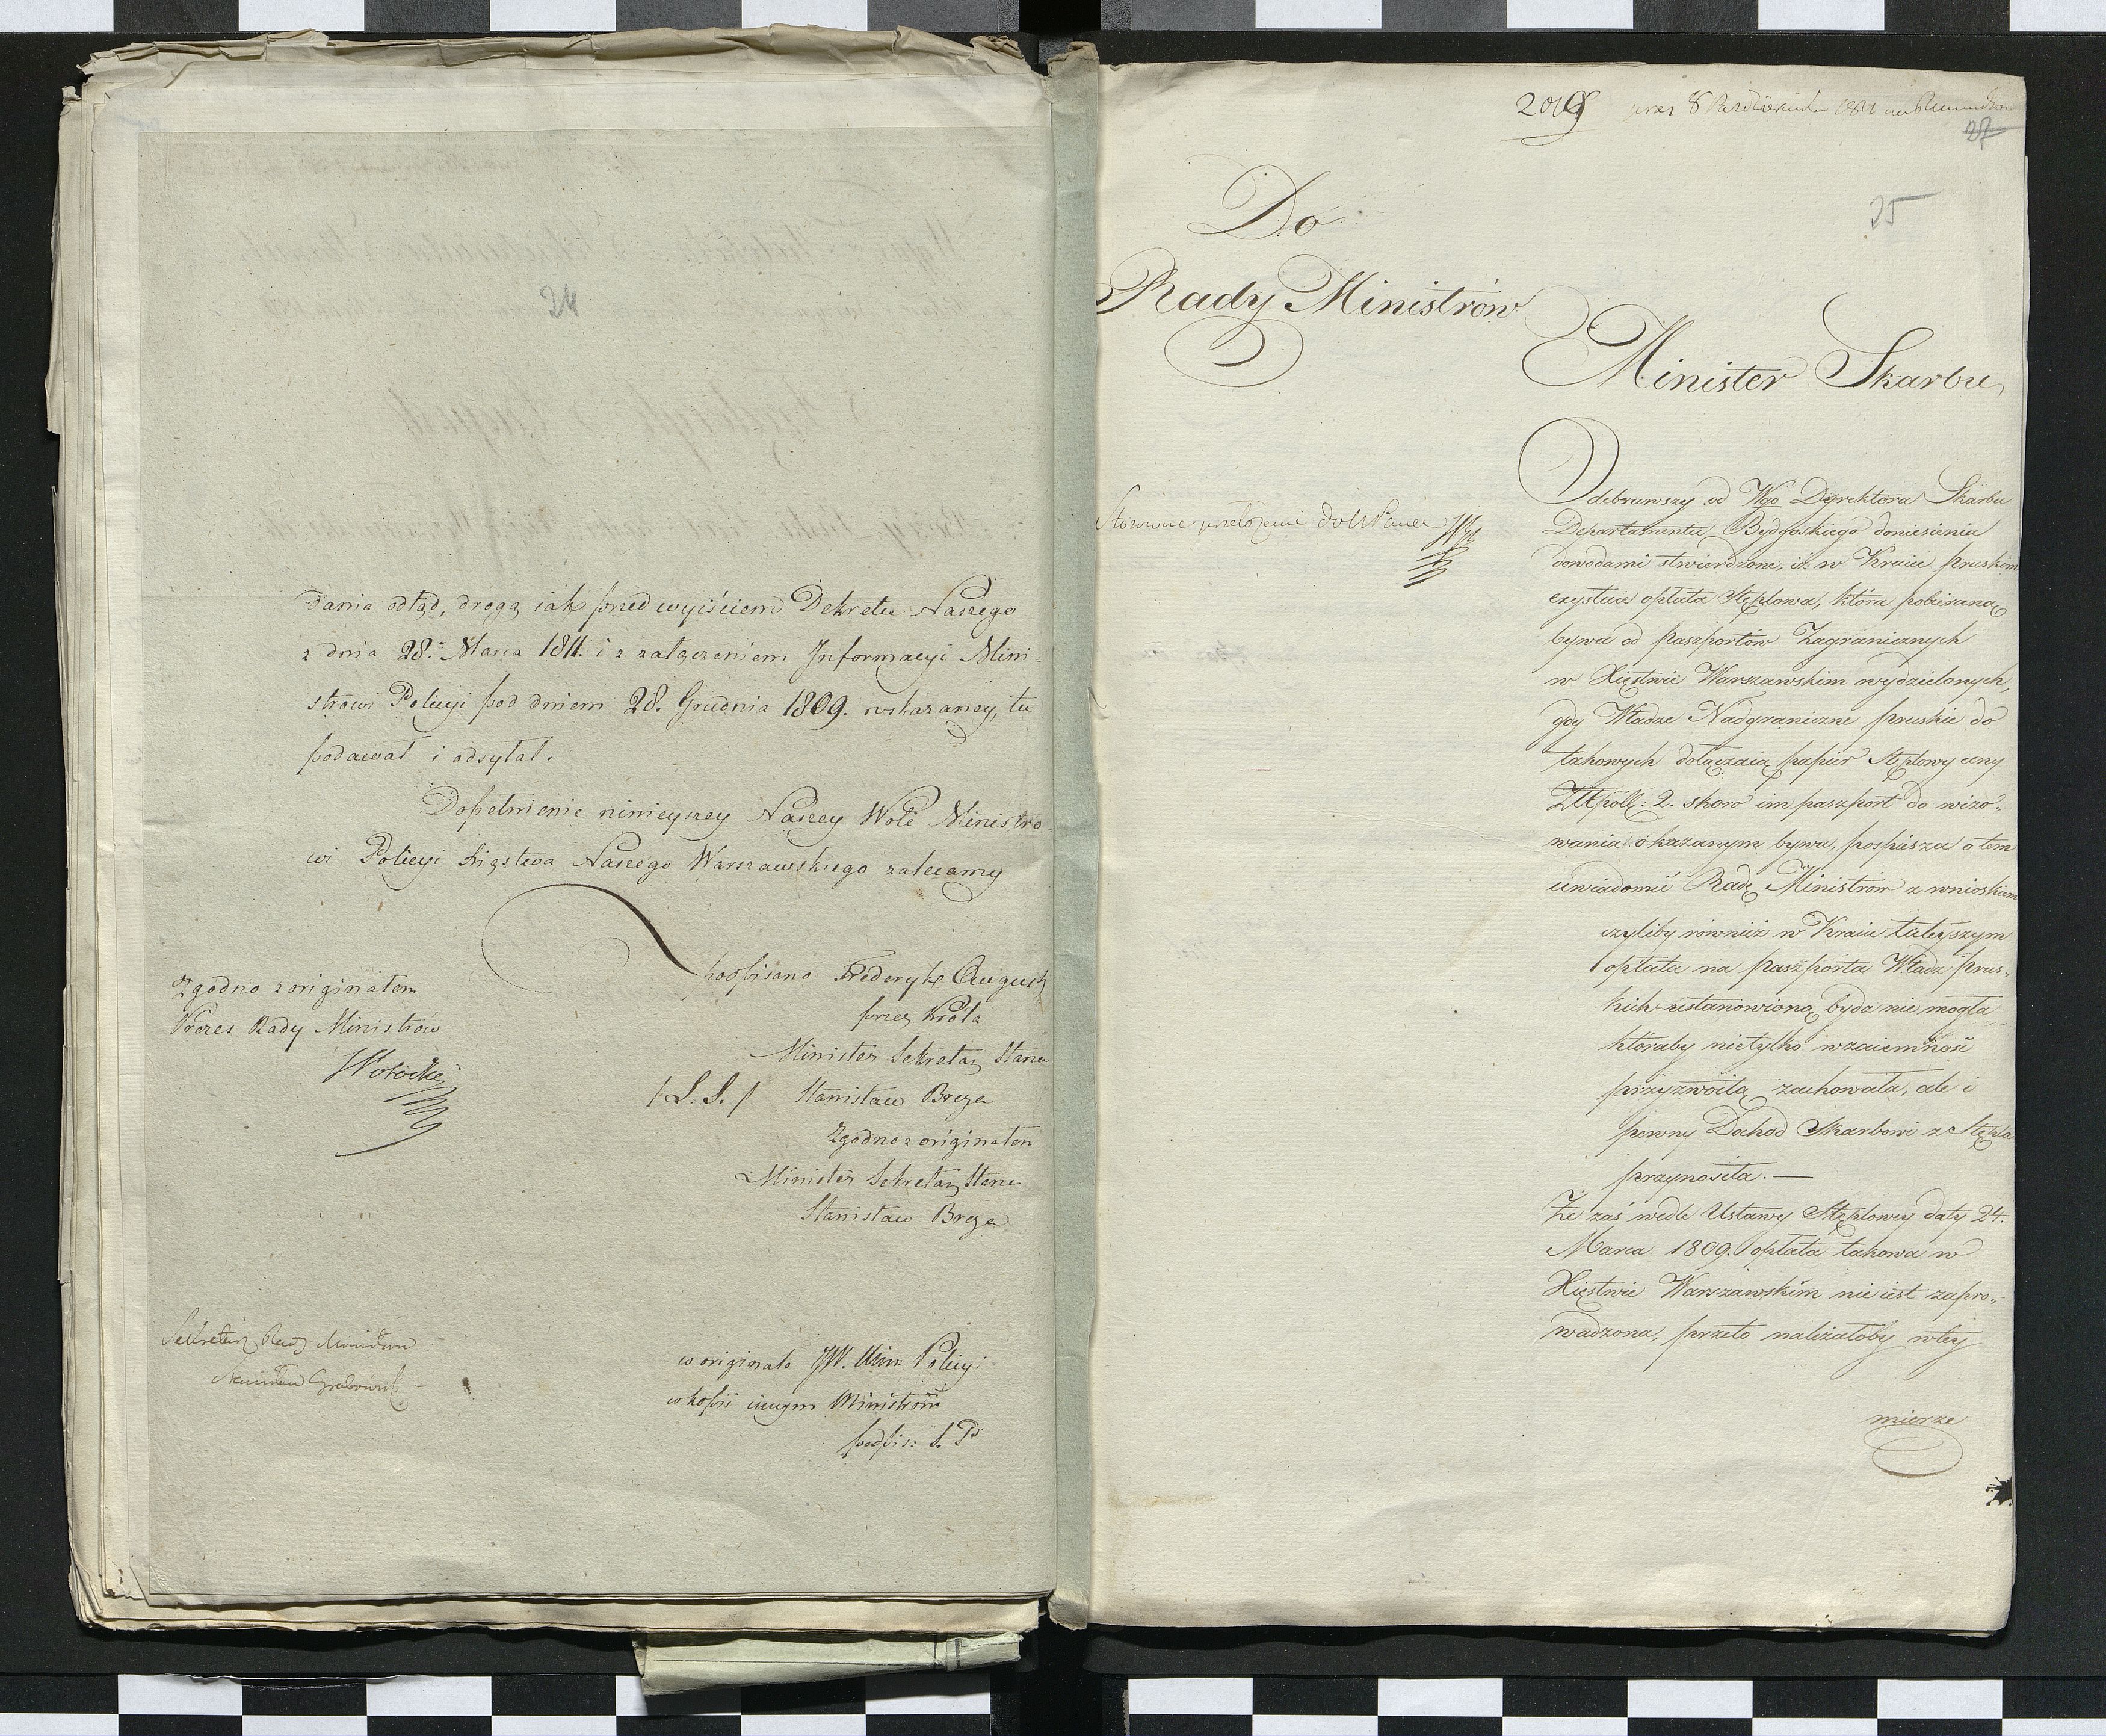 24
dania odtąd, drogą iak przed wyiściem Dekretu Naszego
z dnia 28. Marca 1811. i z załączeniem Informacyi Mini-
strowi Policyi pod dniem 28. Grudnia 1809. wskazaney, tu
podawał i odsyłał.
Dopełnienie ninieyszey Naszey Woli Ministro-
wi Policyi Xięstwa Naszego Warszawskiego zalecamy
podpisano Frederyk August
przez Króla
Minister Sekretarz Stanu
/L.S./ Stanisław Breza
Zgodno z originałem
Minister Sekretarz Stanu
Stanisław Breza
Zgodno z originałem
Prezes Rady Ministrów
Potocki
Sekretarz Rady Ministrów
Stanisław Grabowski
w originale JW. Min: Policyi
w kopii innym Ministrom
podpis: S. P
8 Października 1811
27
25
Do
Rady Ministrów
Minister Skarbu
Odebrawszy od Wgo Dyrektora Skarbu
Departamentu Bydgoskiego doniesienia
dowodami stwierdzone, iż w Kraiu pruskim
exystuie opłata Stęplowa, która pobieraną
bywa od paszportów Zagranicznych
w Xięstwie Warszawskim wydzielonych,
gdy Władze Nadgraniczne pruskie do
takowych dołączaią papier Stęplowy ceny
Złpoll: 2. skoro im paszport do wizo-
wania okazanym bywa, pospiesza o tem
uwiadomić Radę Ministrów z wnioskiem
czyliby również w Kraiu tuteyszym
opłata na paszporta Władz prus-
kich ustanowioną bydz nie mogła
któraby nietylko wzaiemność
przyzwoitą zachowała, ale i
pewny Dochod Skarbowi z Stępla
przynosiła. —
Że zaś wedle Ustawy Stęplowey daty 24.
Marca 1809. opłata takowa w
Xięstwie Warszawskim nie iest zapro-
wadzona, przeto należałoby wtey
mierze